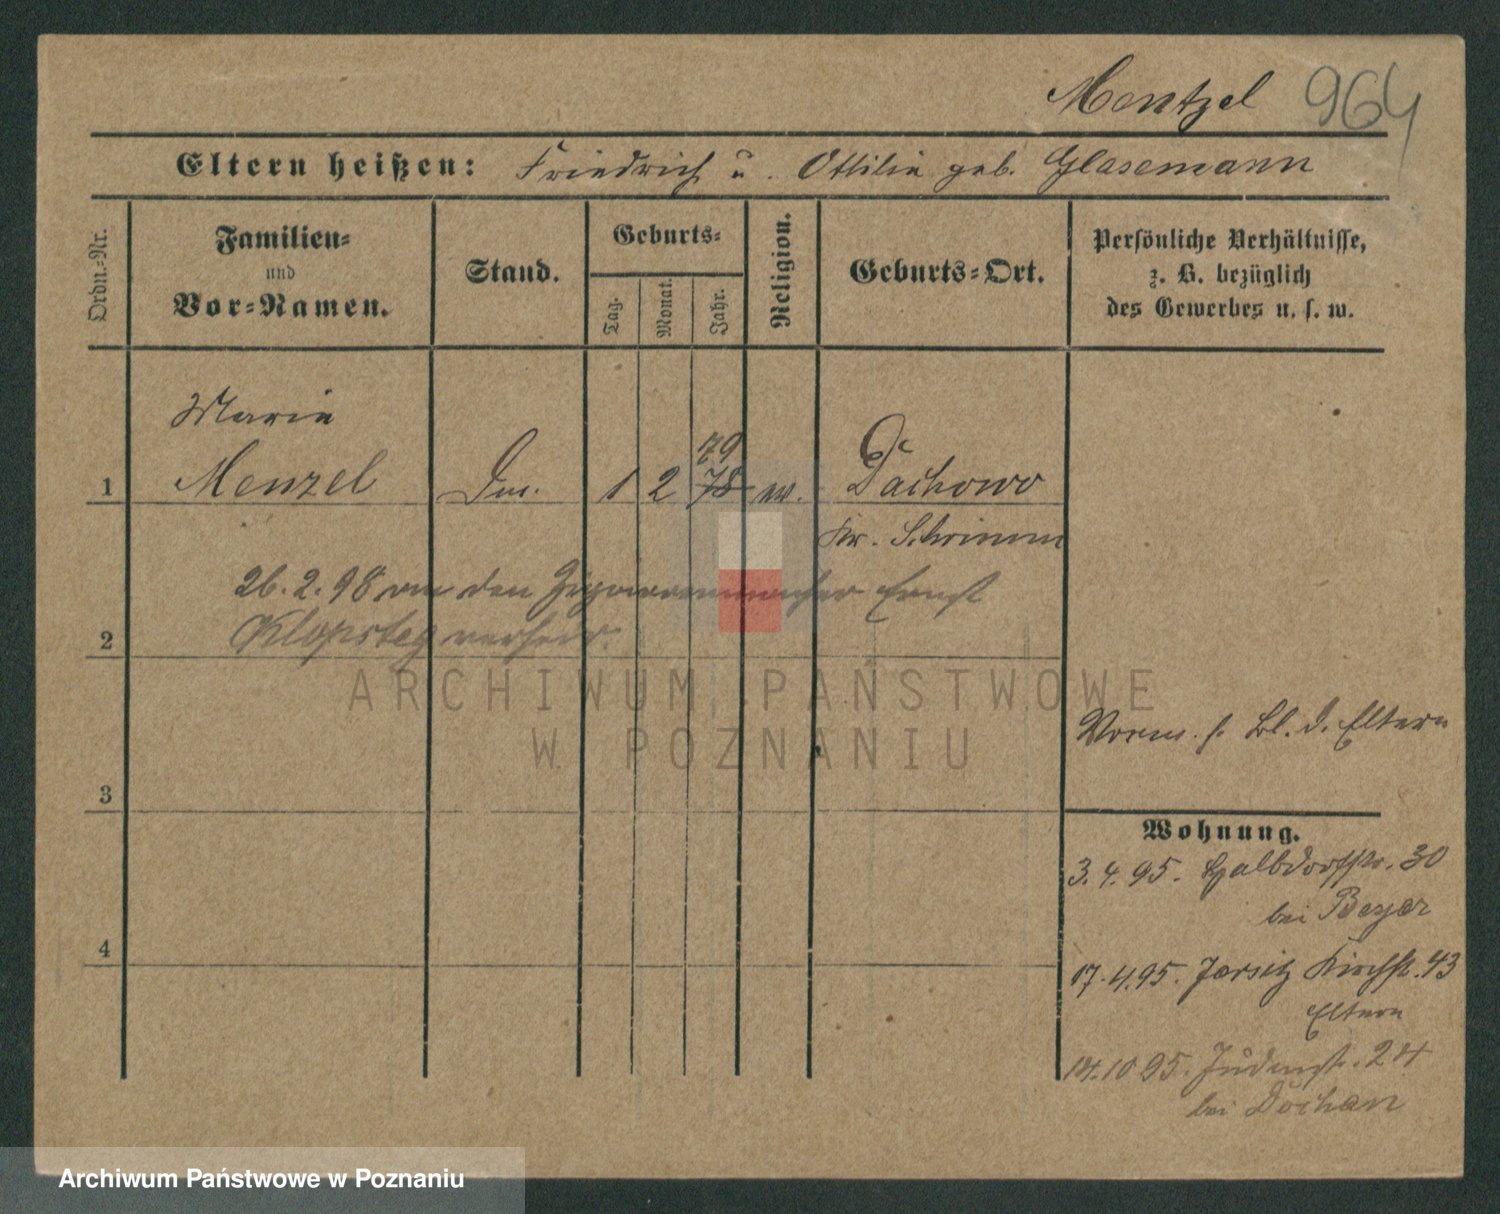 Mentzel 964
Eltern heißen: Friedrich u. Ottilie geb. Glasemann
Ordn.-Nr.
Familien-
und
Vor-Namen.
Stand.
Geburts-
Tag.
Monat.
Jahr.
Religion.
Geburts-Ort.
Persönliche Verhältnisse,
z. B. bezüglich
des Gewerbes u. s. w.
Marie
79
1 Menzel 1 2 78 Dachowo
Kr. Schrimm
26. 2. 98 an den Zigarrenmacher Ernst
2 Klopsteg verheir.
ARCHIWUM PAŃSTWOWE
W POZNANIU
Vorm. s. Bl. d. Eltern
3
Wohnung.
3. 4. 95. Halbdorfstr. 30
bei Beyer
4
17. 4. 95. Jersitz Kirchstr. 43
Eltern
14. 10 95. Judenstr. 24
bei
Archiwum Państwowe w Poznaniu